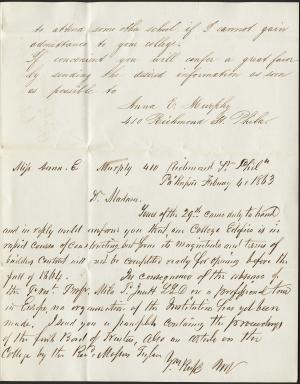 to attend some other school if I cannot gain
admittance to your college.
If convenient you will confer a great favor
by sending the desired information as soon
as possible to
Anna E. Murphy
410 Richmond St Phila.
Miss Anna. E. Murphy 410 Richmond St Phila
Po'keepsie February 4, 1863
Dr. Madam.
Yours of the 29th. came duly to hand
and in reply would inform you that our College Edifice is in
rapid course of construction, but from its magnitude and terms of
building Contract will not be completed ready for opening before the
fall of 1864.
In consequence of the absence of
the President Profr. Milo P. Jewett LLD on a professional tour
in Europe, no organization of the Institution has yet been
made. I send you a pamphlet containing the proceedings
of the first Board of Trustees, Also an article on the
College by the Revd.
Yrs Resp.